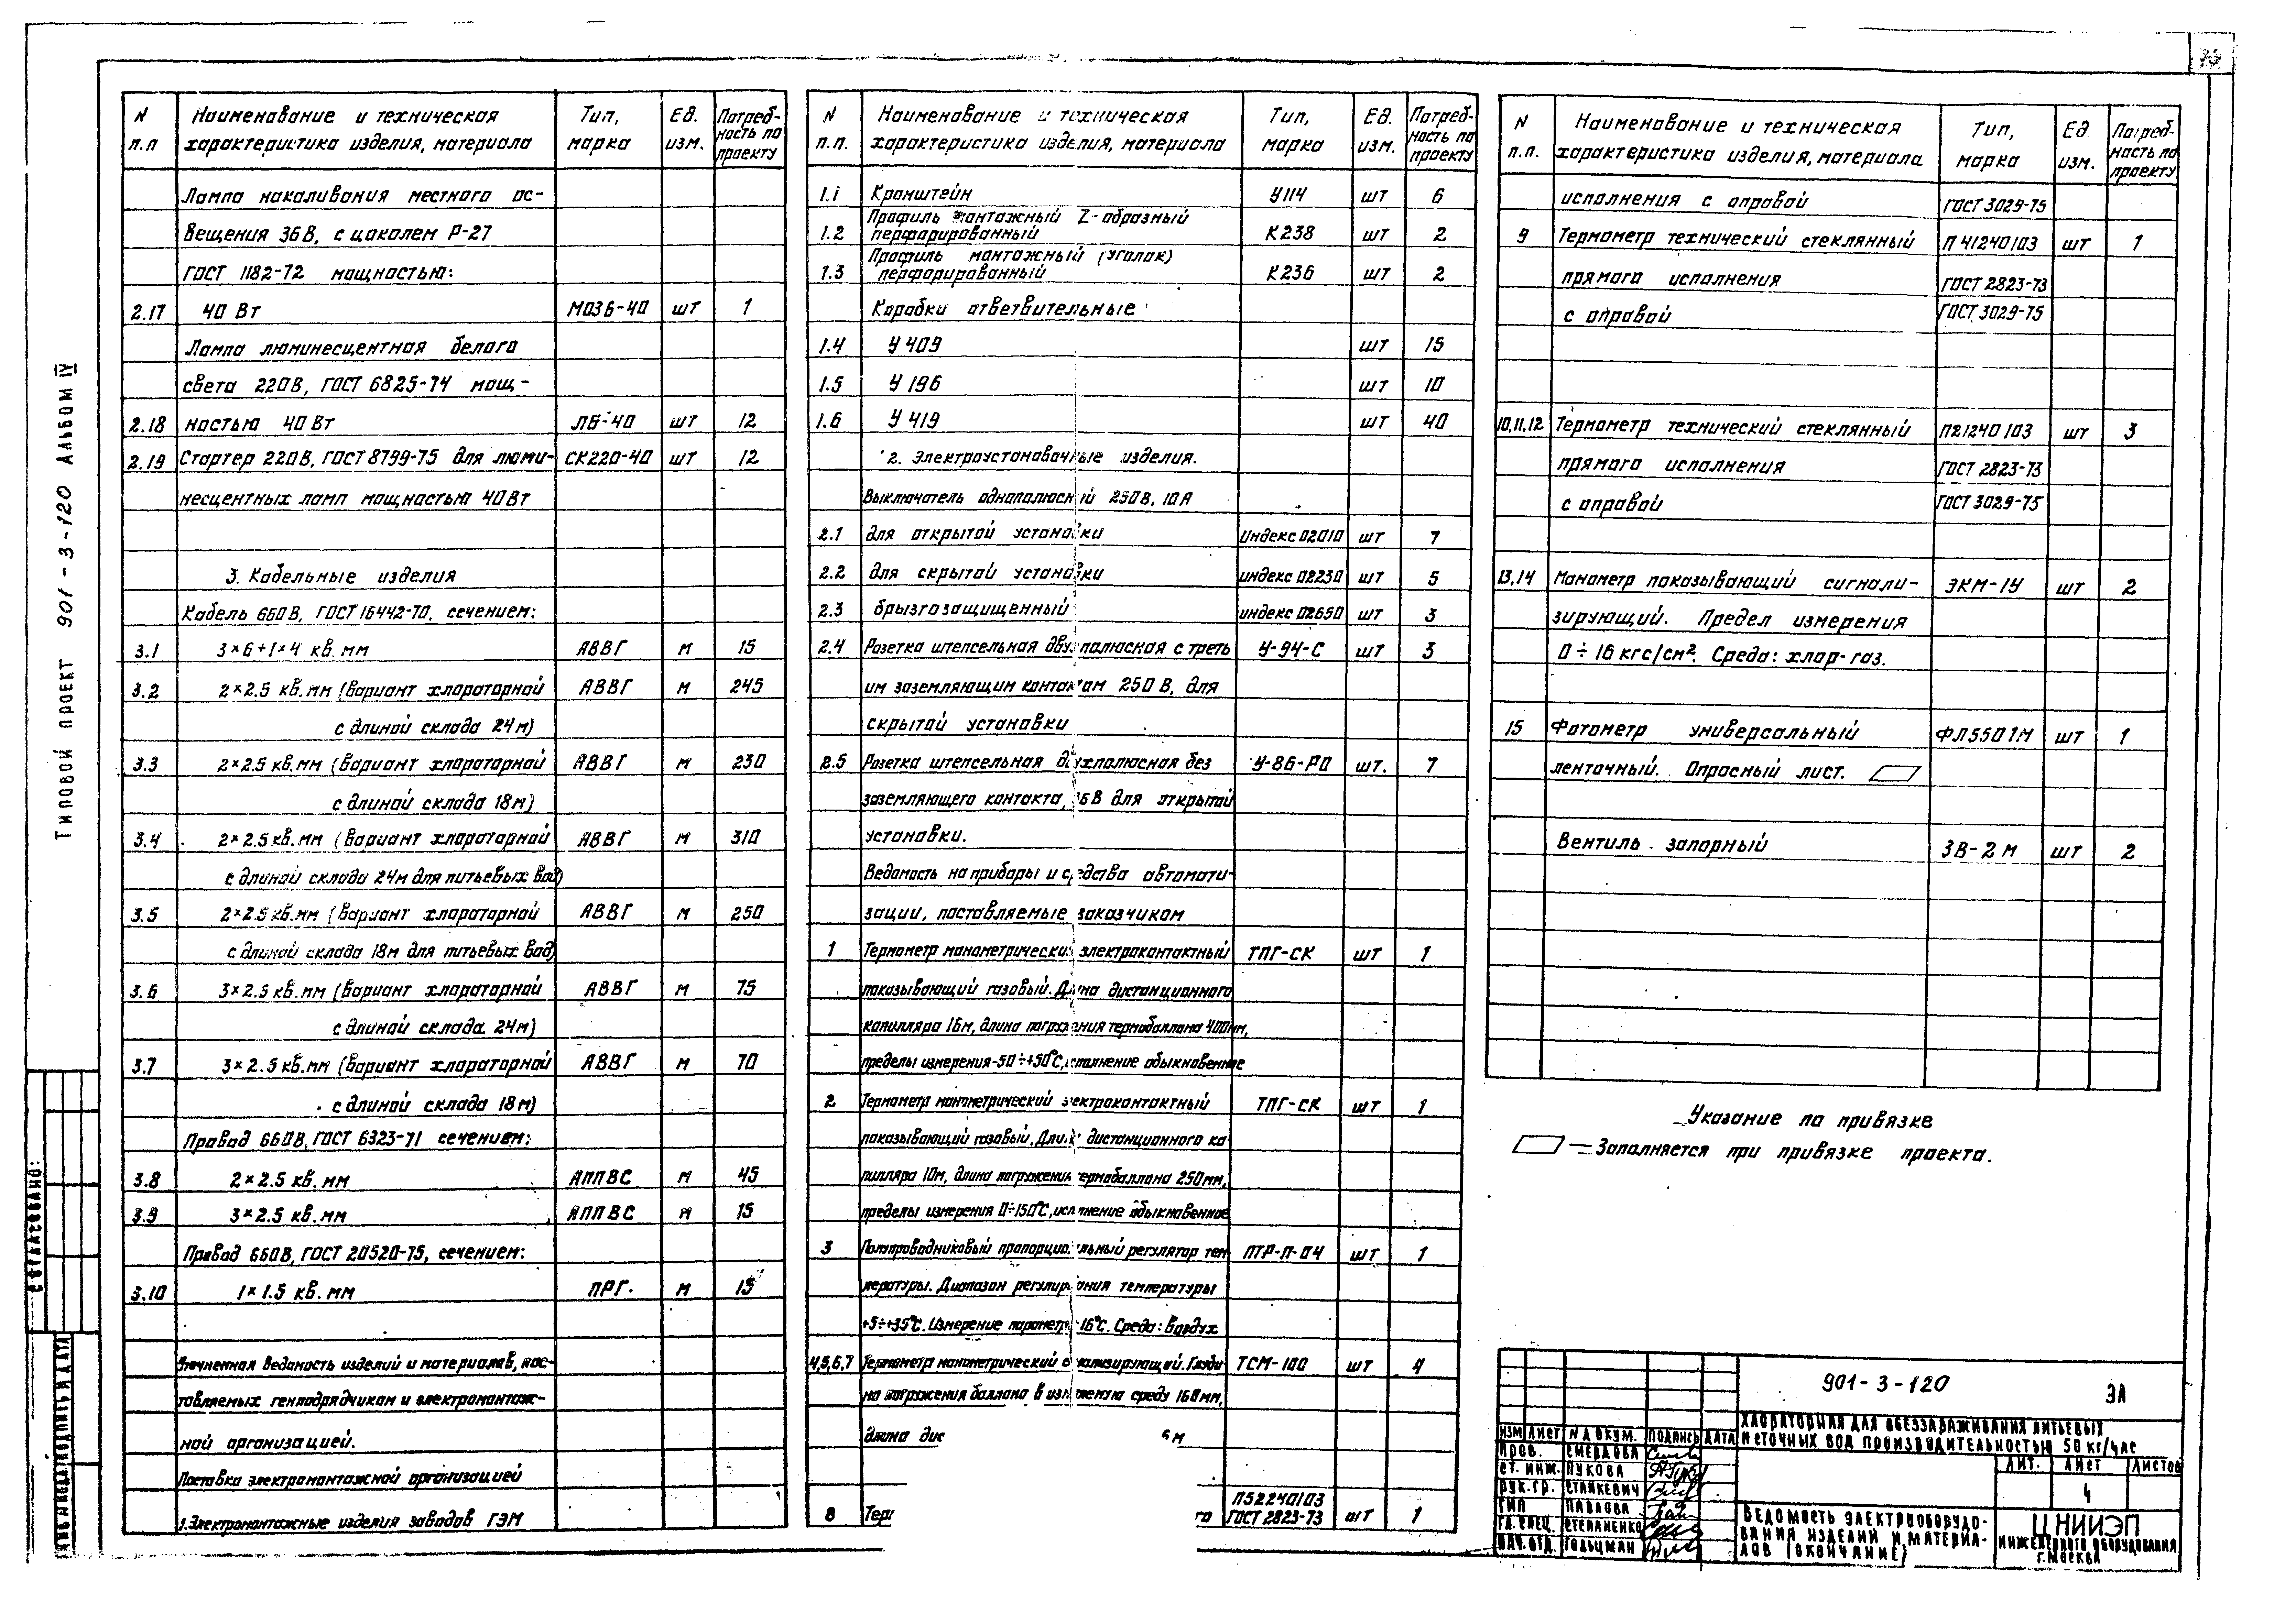 Типовой проект 901-3-120 Альбом IV
N п.п Наименование и техническая характеристика изделия, материала Тип, марка Ед. изм. Потребность по проекту
Лампа накаливания местного ос-
вещения 36В, с цоколем Р-27
ГОСТ 1182-72 мощностью:
2.17 40 Вт МО36-40 шт 1
Лампа люминесцентная белого
света 220В, ГОСТ 6825-74 мощ-
2.18 ностью 40Вт ЛБ-40 шт 12
2.19 Стартер 220В, ГОСТ 8799-75 для люми- СК220-40 шт 12
несцентных ламп мощностью 40Вт
3. Кабельные изделия
Кабель 660В, ГОСТ 16442-70, сечением:
3.1 3×6+1×4 кв.мм АВВГ м 15
3.2 2×2.5 кв.мм (вариант хлораторной АВВГ м 245
с длиной склада 24м)
3.3 2×2.5 кв.мм (вариант хлораторной АВВГ м 230
с длиной склада 18м)
3.4 2×2.5 кв.мм (вариант хлораторной АВВГ м 310
с длиной склада 24м для питьевых вод)
3.5 2×2.5 кв.мм (вариант хлораторной АВВГ м 250
с длиной склада 18м для питьевых вод)
3.6 3×2.5 кв.мм (вариант хлораторной АВВГ м 75
с длиной склада 24м)
3.7 3×2.5 кв.мм (вариант хлораторной АВВГ м 70
с длиной склада 18м)
Провод 660В, ГОСТ 6323-71 сечением:
3.8 2×2.5 кв.мм АППВС м 45
3.9 3×2.5 кв.мм АППВС м 15
Провод 660В, ГОСТ 20520-75, сечением:
3.10 1×1.5 кв.мм ПРГ. м 15
Уточненная ведомость изделий и материалов, пос-
тавляемых генподрядчиком и электромонтаж-
ной организацией.
Поставка электромонтажной организацией
1. Электромонтажные изделия заводов ГЭМ
N п.п. Наименование и техническая характеристика изделия, материала Тип, марка Ед. изм. Потребность по проекту
1.1 Кронштейн У114 шт 6
Профиль монтажный Z-образный
1.2 перфорированный К238 шт 2
Профиль монтажный (уголок)
1.3 перфорированный К236 шт 2
Коробки ответвительные
1.4 У 409 шт 15
1.5 У 196 шт 10
1.6 У 419 шт 40
2. Электроустановочные изделия.
Выключатель однополюсный 250В, 10А
2.1 для открытой установки индекс 02010 шт 7
2.2 для скрытой установки индекс 02230 шт 5
2.3 брызгозащищенный индекс 02650 шт 3
2.4 Розетка штепсельная двухполюсная с треть У-94-С шт 3
им заземляющим контактом 250В, для
скрытой установки
2.5 Розетка штепсельная двухполюсная без У-86-РО шт. 7
заземляющего контакта, 36В для открытой
установки.
Ведомость на приборы и средства автомати-
зации, поставляемые заказчиком
1 Термометр манометрический электроконтактный ТПГ-СК шт 1
показывающий газовый. Длина дистанционного
капилляра 16м, длина погружения термобаллона 400мм,
пределы измерения -50÷+50°С, исполнение обыкновенное
2 Термометр манометрический электроконтактный ТПГ-СК шт 1
показывающий газовый. Длина дистанционного ка-
пилляра 10м, длина погружения термобаллона 250мм,
пределы измерения 0÷150°С, исполнение обыкновенное
3 Полупроводниковый пропорциональный регулятор тем ПТР-П-04 шт 1
пературы. Диапазон регулирования температуры
+5÷+35°С. Измерение параметра 16°С. Среда: воздух
4,5,6,7 Термометр манометрический сигнализирующий. Глуби ТСМ-100 шт 4
на погружения баллона в измеряемую среду 160мм,
длина дис 6м
8 Тер го П52240103 ГОСТ 2823-73 шт 1
N п.п. Наименование и техническая характеристика изделия, материала Тип, марка Ед. изм. Потребность по проекту
исполнения с оправой ГОСТ 3029-75
9 Термометр технический стеклянный П 41240103 шт 1
прямого исполнения ГОСТ 2823-73
с оправой ГОСТ 3029-75
10,11,12 Термометр технический стеклянный П21240103 шт 3
прямого исполнения ГОСТ 2823-73
с оправой ГОСТ 3029-75
13,14 Манометр показывающий сигнали- ЭКМ-1У шт 2
зирующий. Предел измерения
0÷16 кгс/см². Среда: хлор-газ.
15 Фотометр универсальный ФЛ5501М шт 1
ленточный. Опросный лист.
Вентиль запорный ЗВ-2М шт 2
Указание по привязке
— Заполняется при привязке проекта.
901-3-120 ЭЛ
Хлораторная для обеззараживания питьевых
и сточных вод производительностью 50 кг/час
Изм Лист N докум. Подпись Дата
Пров. Смердова
Ст. инж. Пукова
Рук. гр. Станкевич
ГИП Павлова
Гл. спец. Степаненко
Нач. отд. Гольцман
Лит. Лист Листов
4
Ведомость электрооборудо-
вания изделий и материа-
лов (окончание)
ЦНИИЭП
инженерного оборудования
г. Москва
Согласовано: